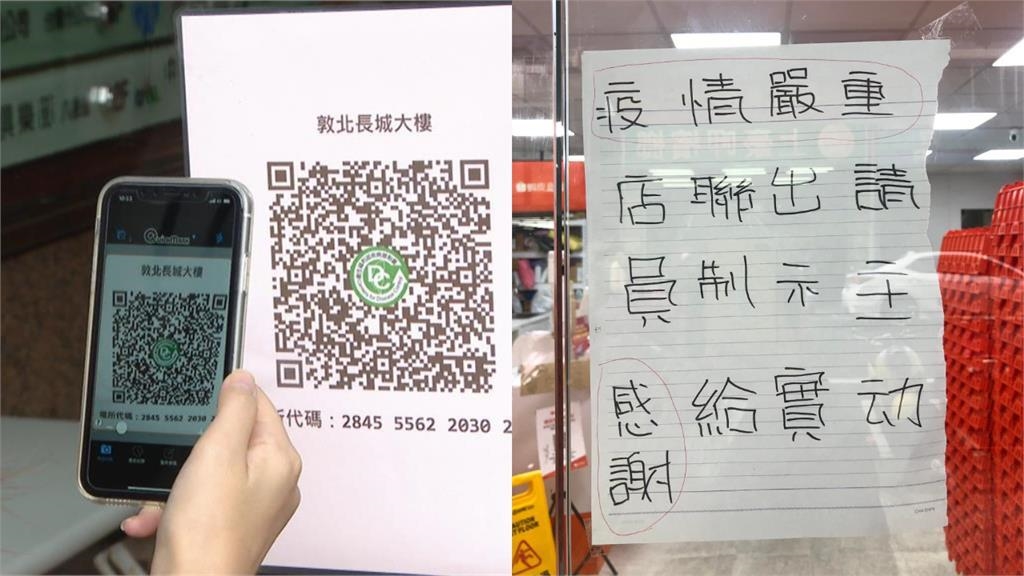 敦北長城大樓
所代碼：2845 5562 2030 2
10:53
敦北長城大樓
場所代碼：2845 5562 2030
疫情嚴重
請主动
出示實
聯制給
店員
感謝
CAUTION